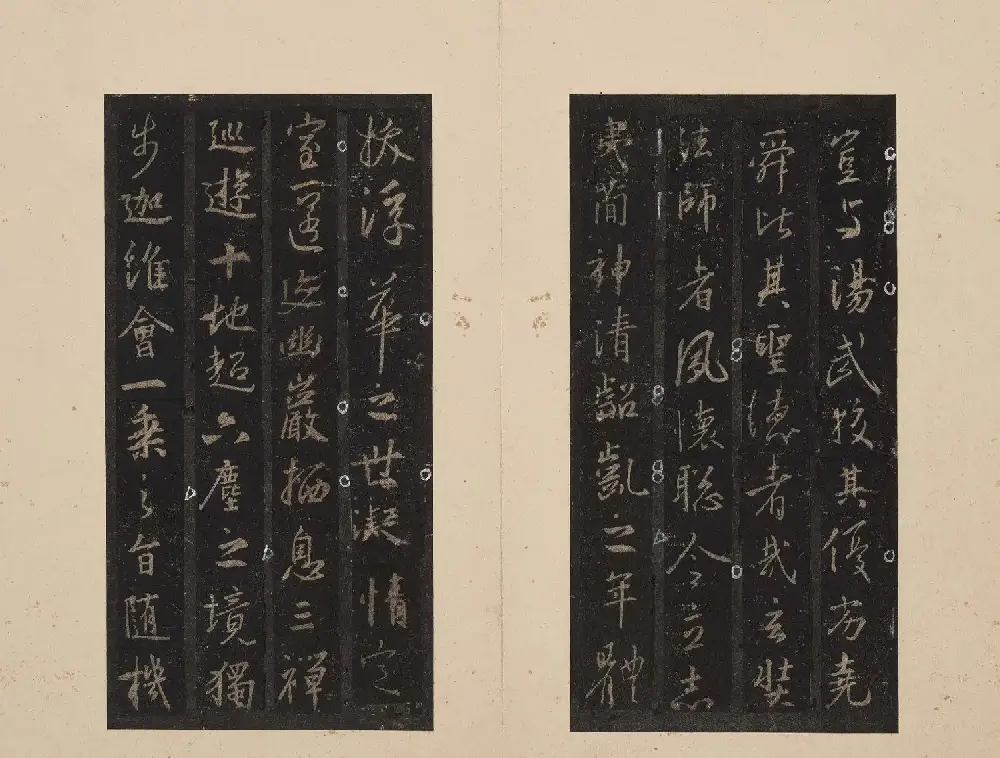 豈與湯武挍其優劣堯
舜比其聖德者哉玄奘
法師者夙懷聡令立志
夷簡神清齠齔之年體
拔浮華之世凝情定
室匿迹幽巖栖息三禪
巡遊十地超六塵之境獨
步迦維會一乘之旨随機